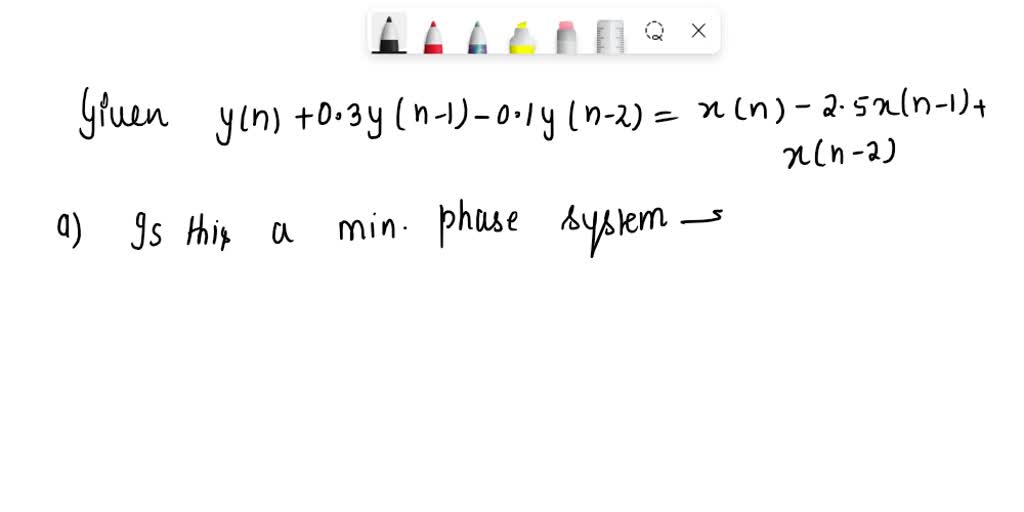 Given y(n) + 0.3y(n-1) - 0.1y(n-2) = x(n) - 2.5x(n-1) +
x(n-2)
a) Is this a min. phase system →